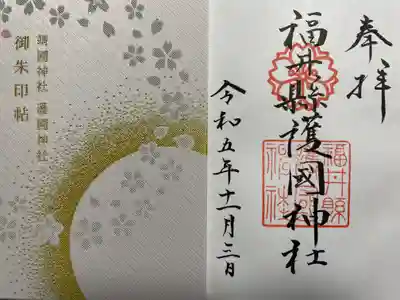 奉拝
福井縣護國神社
令和五年十一月三日
福井縣
護國
神社
靖國神社 護國神社
御朱印帖